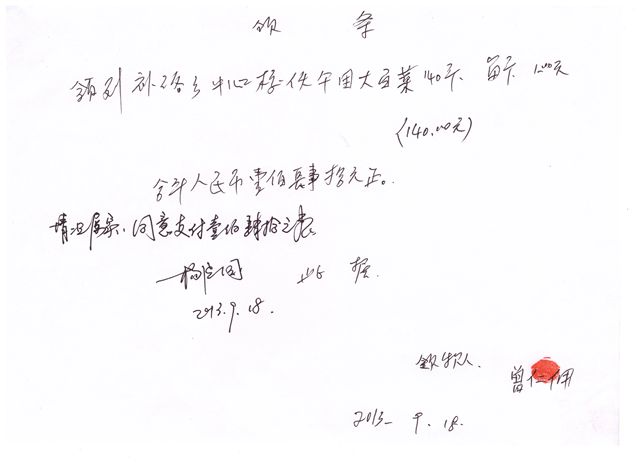 领 条
领到 中心 午用大白菜140斤、单价 1.00元
(140.00元)
合计人民币壹佰肆拾元正。
情况属实,同意支付壹佰肆拾元整
此 据.
2013.9.18.
领款人.
曾仁
2013- 9. 18.